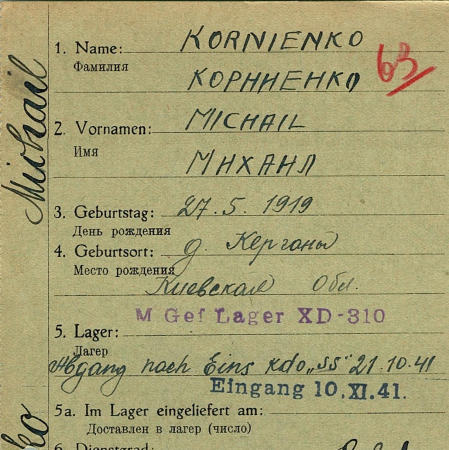 KORNIENKO
1. Name:
Фамилия
63
КОРНИЕНКО
MICHAIL
2. Vornamen:
Имя
МИХАИЛ
3. Geburtstag: 27.5.1919
День рождения
4. Geburtsort: д.
Место рождения
Киевская Обл.
M Gef Lager XD-310
5. Lager:
Лагер
Abgang nach Eins Kdo „SS" 21.10.41
Eingang 10.XI.41.
5a. Im Lager eingeliefert am:
Доставлен в лагер (число)
6. Dienstgrad:
Michail
ko